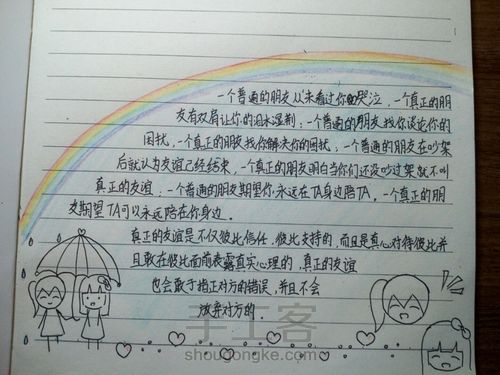 一个普通的朋友从未看过你哭泣，一个真正的朋
友有双肩让你的泪水湿制；一个普通的朋友找你谈论你的
困扰，一个真正的朋友找你解决你的困扰；一个普通的朋友在吵架
后就认为友谊已经结束，一个真正的朋友明白当你们还没吵过架就不叫
真正的友谊；一个普通的朋友期望你永远在TA身边陪TA，一个真正的朋
友期望TA可以永远陪在你身边．
真正的友谊是不仅彼此信任，彼此支持的，而且是真心对待彼此并
且敢在彼此面前表露真实心理的，真正的友谊
也会敢于指正对方的错误，并且不会
放弃对方的．
手工客
shougongke.com